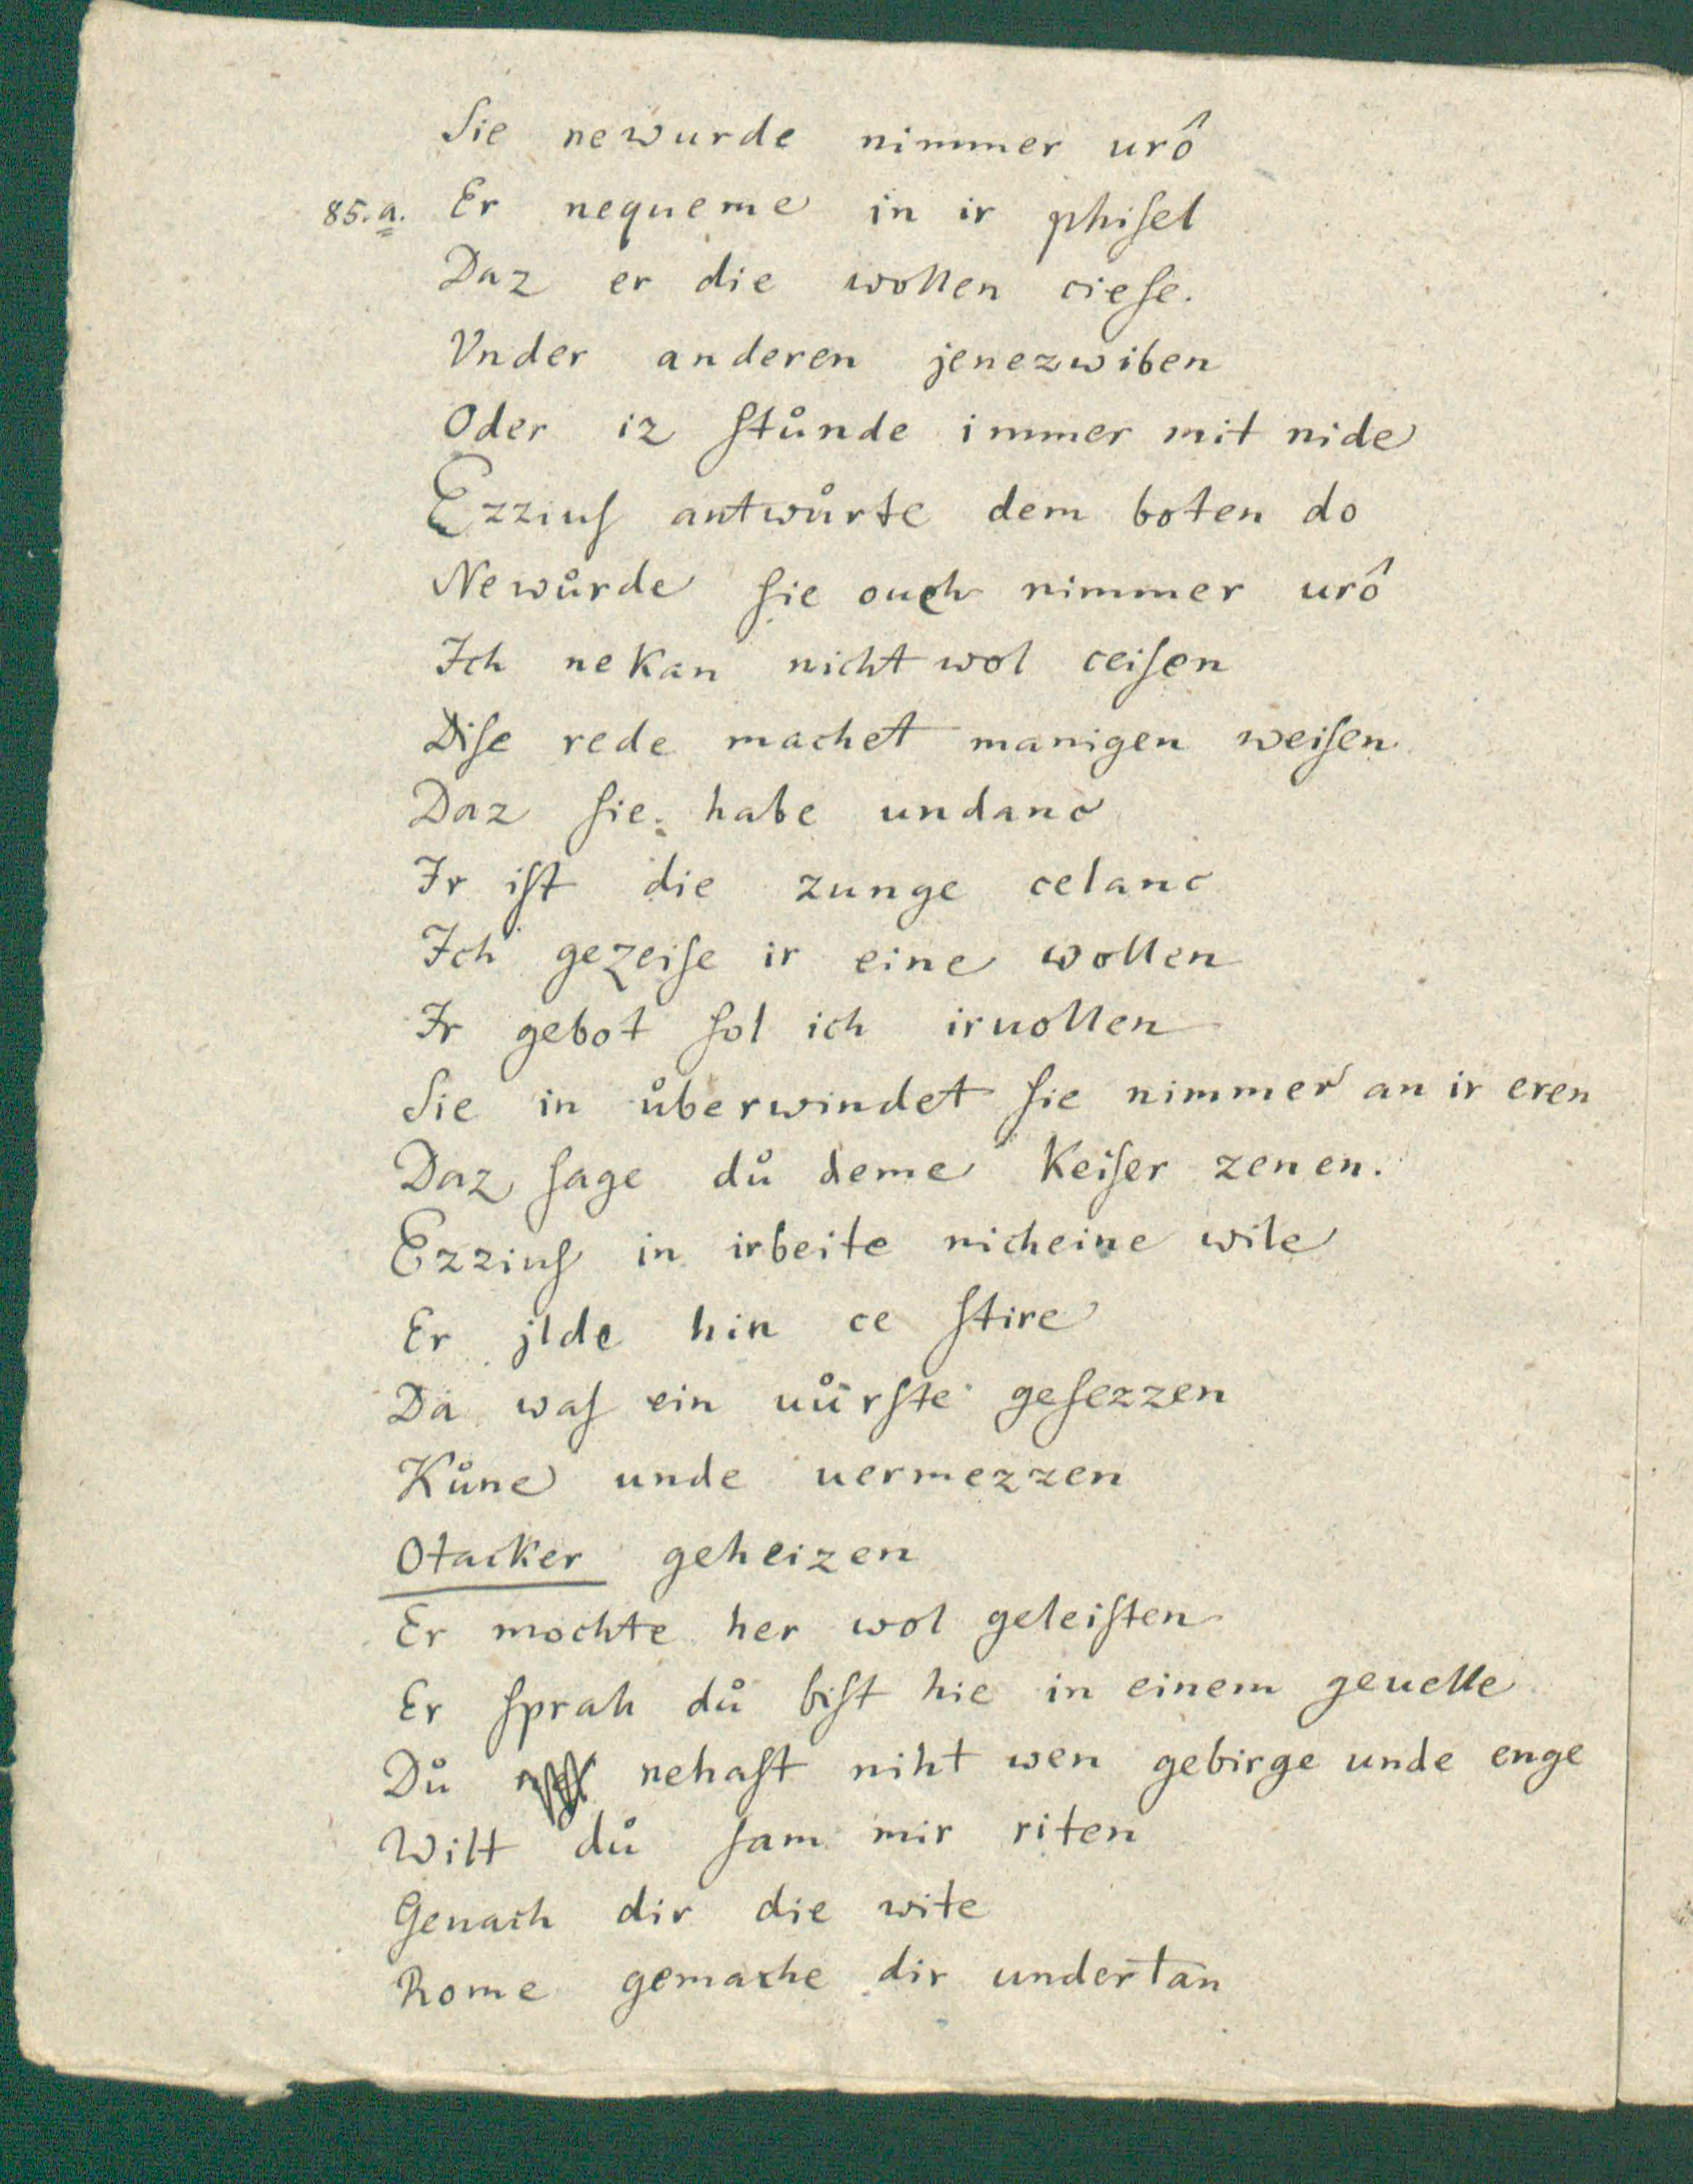 Sie newurde nimmer urô
85.a. Er nequeme in ir phiſel
Daz er die wollen cieſe.
Vnder anderen jenezwiben
Oder iz ſtůnde immer mit nide
Ezziuſ antwůrte dem boten do
Newůrde ſie ouch nimmer urô
Ich nekan nicht wol ceiſen
Diſe rede machet manigen weiſen
Daz ſie habe undanc
Ir iſt die zunge celanc
Ich gezeiſe ir eine wollen
Ir gebot ſol ich iruollen
Sie in ůberwindet ſie nimmer an ir eren
Daz ſage dů deme Keiſer zenen.
Ezziuſ in irbeite nicheine wile
Er jlde hin ce ſtire
Da waſ ein uůrſte geſezzen
Kůne unde uermezzen
Otacker geheizen
Er mochte her wol geleiſten
Er ſprah dů biſt hie in einem geuelle
Dů nehaſt niht wen gebirge unde enge
Wilt dů ſam mir riten
Genach dir die wite
Rome gemache dir undertan